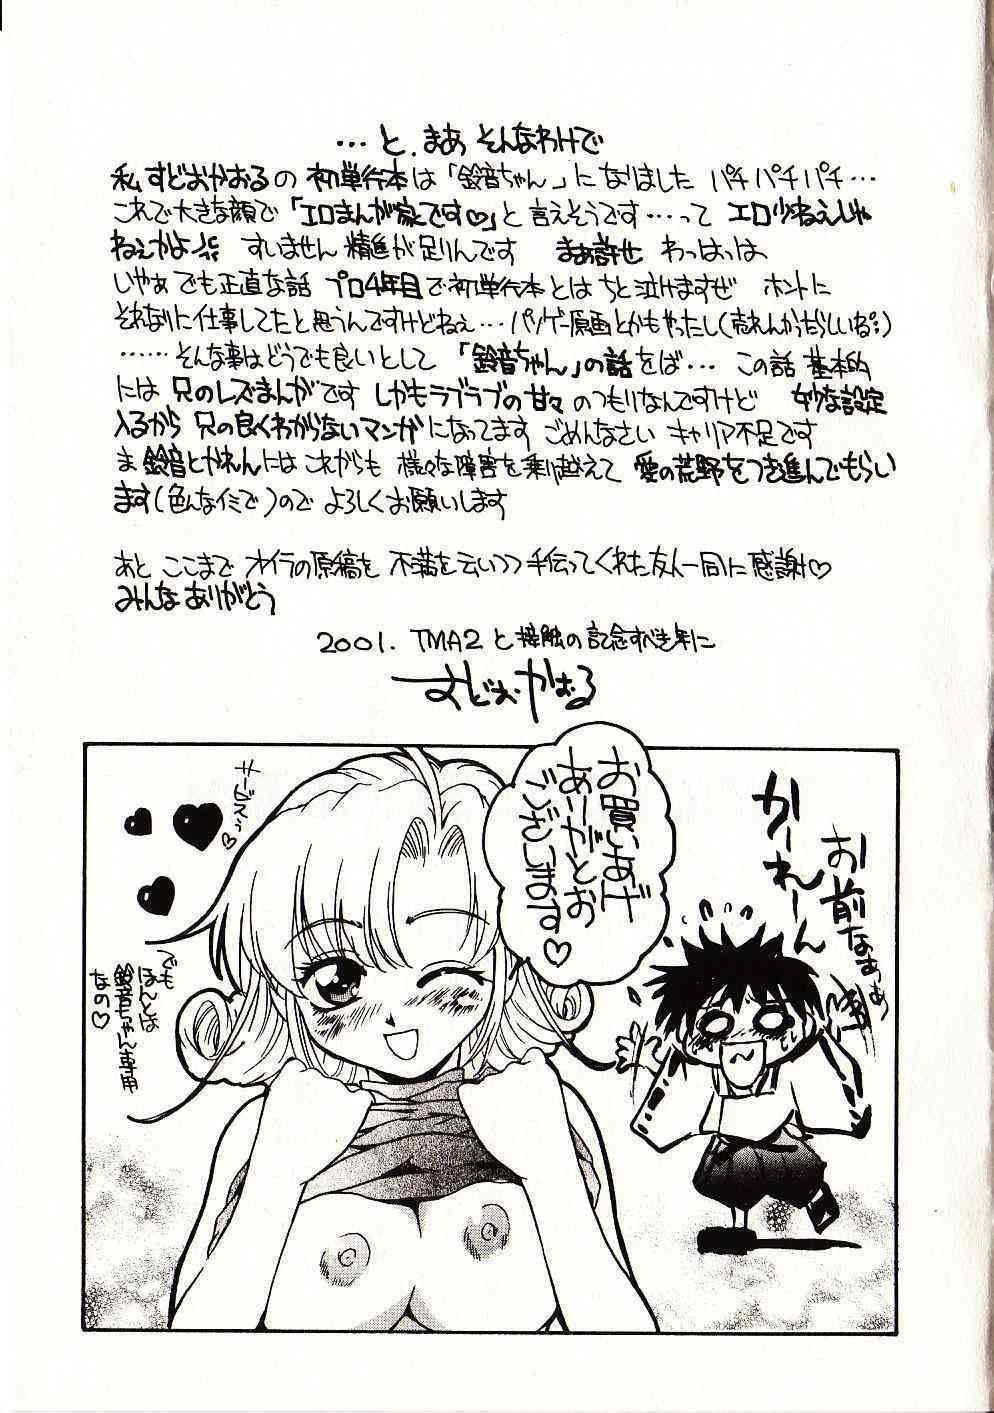 …と、まあ そんなわけで
私 すどおかおるの 初単行本は「鈴音ちゃん」になりました パチパチパチ…
これで大きな顔で「エロまんが家です♡」と言えそうです…って エロ少ねえじゃ
ねぇかよ すいません 精進が足りんです まぁ許せ わっはっは
いやぁ でも正直な話 プロ4年目で初単行本とは ちと泣けますぜ ホントに
それなりに仕事してたと思うんですけどねぇ…パソゲー原画とかもやったし(売れんかったらしいね)
……そんな事はどうでも良いとして 「鈴音ちゃん」の話をば… この話 基本的
には 兄のレズまんがです しかもラブラブの甘々のつもりなんですけど 妙な設定
入るから 兄の良くわからないマンガになってます ごめんなさい キャリア不足です
ま 鈴音とかれんには これからも 様々な障害を乗り越えて 愛の荒野をつき進んでもらい
ます(色んなイミで)ので よろしくお願いします
あと ここまで オイラの原稿を 不満を云いつつ手伝ってくれた友人一同に 感謝♡
みんなありがとう
2001. TMA2 と接触の記念すべき年に
すどおかおる
お買いあげ
ありがとお
ございます♡
かーれーん
お前なぁぁ
サービスぅ♡
でも
ほんとは
鈴音ちゃん専用
なの♡